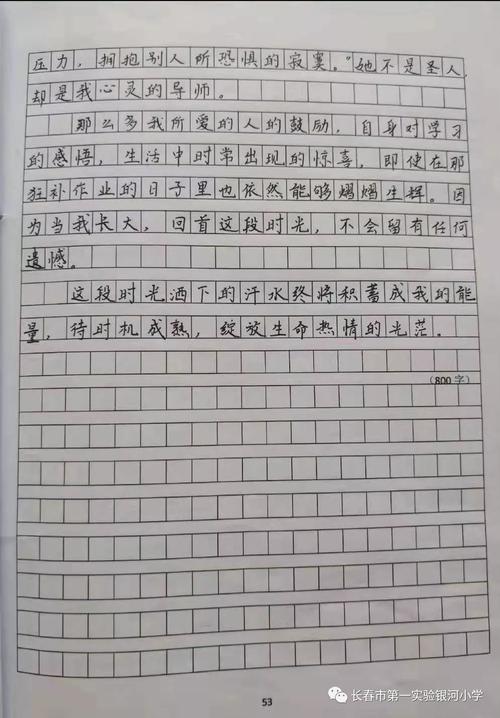 压力，拥抱别人所恐惧的寂寞。”她不是圣人，
却是我心灵的导师。
那么多我所爱的人的鼓励，自身对学习
的感悟，生活中时常出现的惊喜，即使在那
狂补作业的日子里也依然能够熠熠生辉。因
为当我长大，回首这段时光，不会留有任何
遗憾。
这段时光洒下的汗水终将积蓄成我的能
量，待时机成熟，绽放生命热情的光茫．
（800字）
53
长春市第一实验银河小学